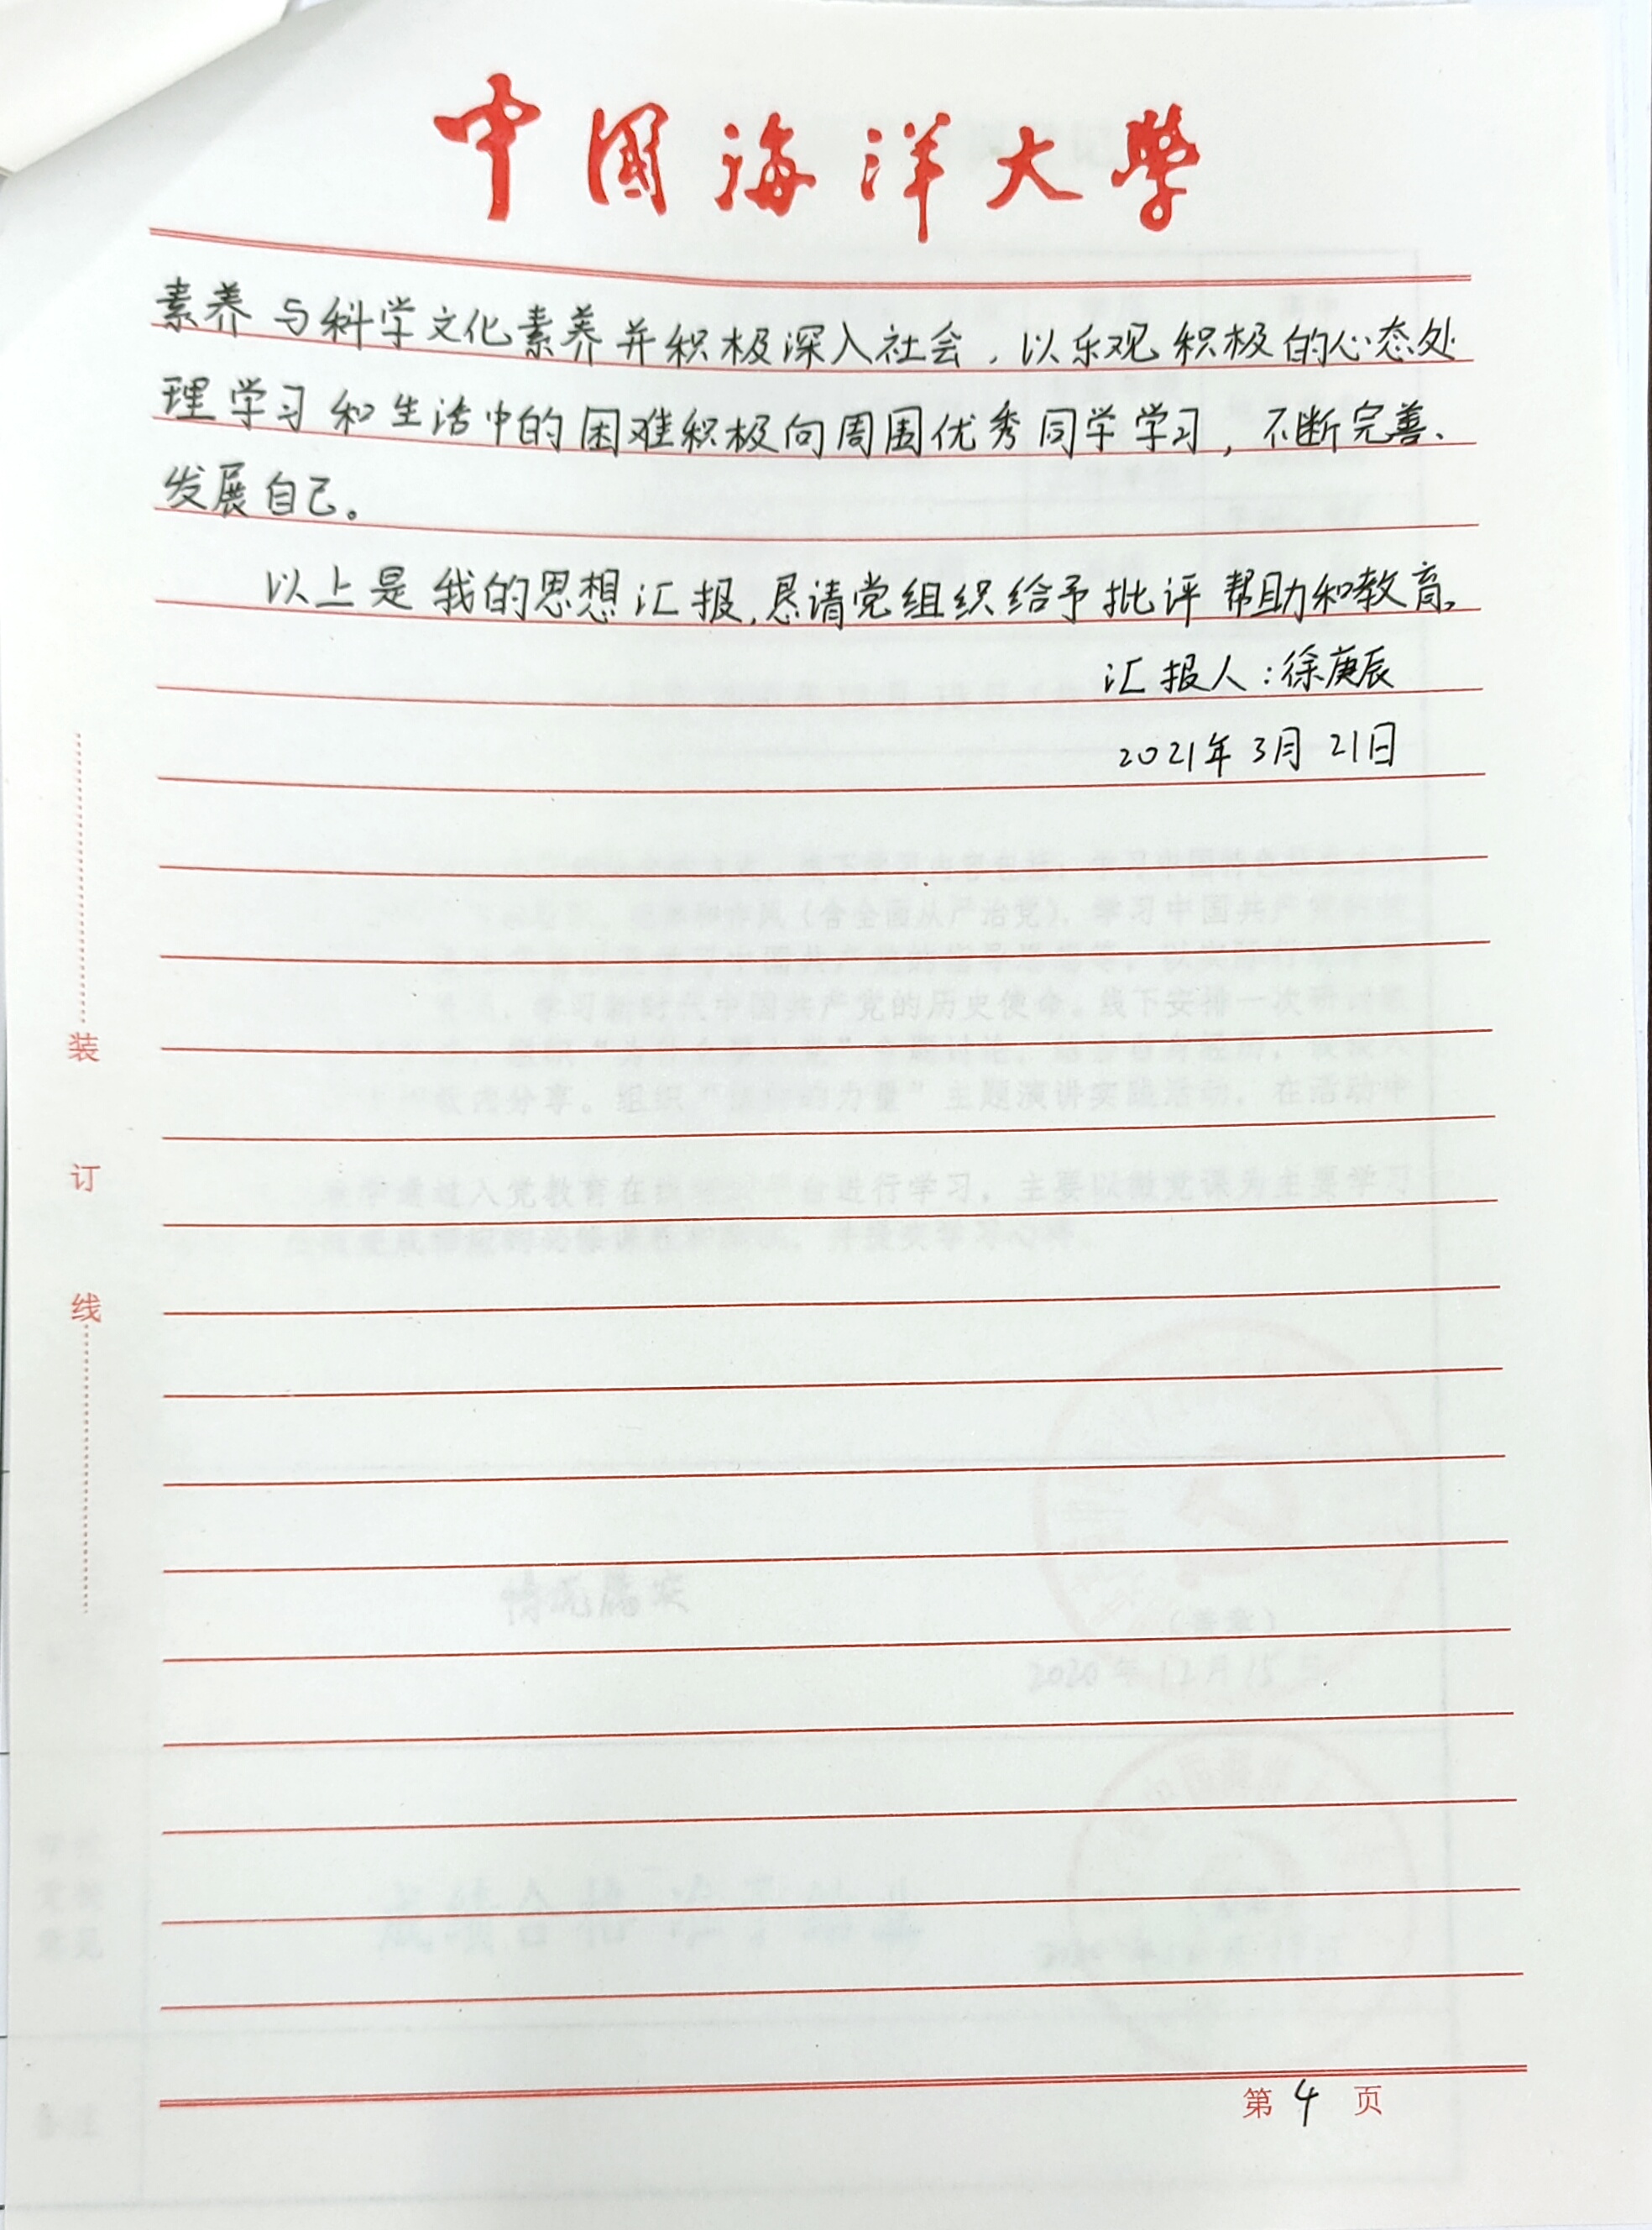 中国海洋大学
素养与科学文化素养并积极深入社会，以乐观积极的心态处
理学习和生活中的困难积极向周围优秀同学学习，不断完善、
发展自己。
以上是我的思想汇报，恳请党组织给予批评帮助和教育。
汇报人：徐庚辰
2021年3月21日
装
订
线
第4页